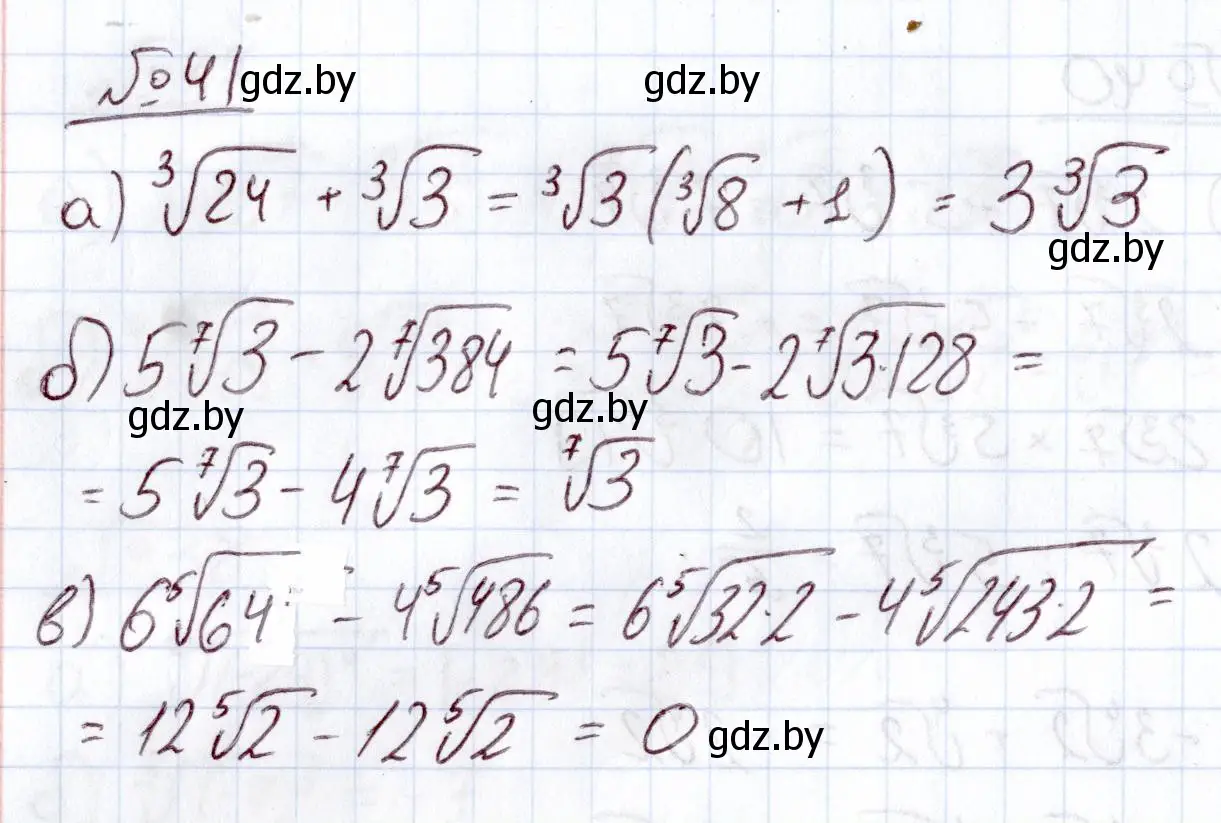 № 41 gdz.by gdz.by
а) ∛24 + ∛3 = ∛3(∛8 + 1) = 3∛3
gdz.by
б) 5⁷√3 - 2⁷√384 = 5⁷√3 - 2⁷√3·128 =
gdz.by gdz.by
= 5⁷√3 - 4⁷√3 = ⁷√3
в) 6⁵√64 - 4⁵√486 = 6⁵√32·2 - 4⁵√243·2 =
= 12⁵√2 - 12⁵√2 = 0 gdz.by